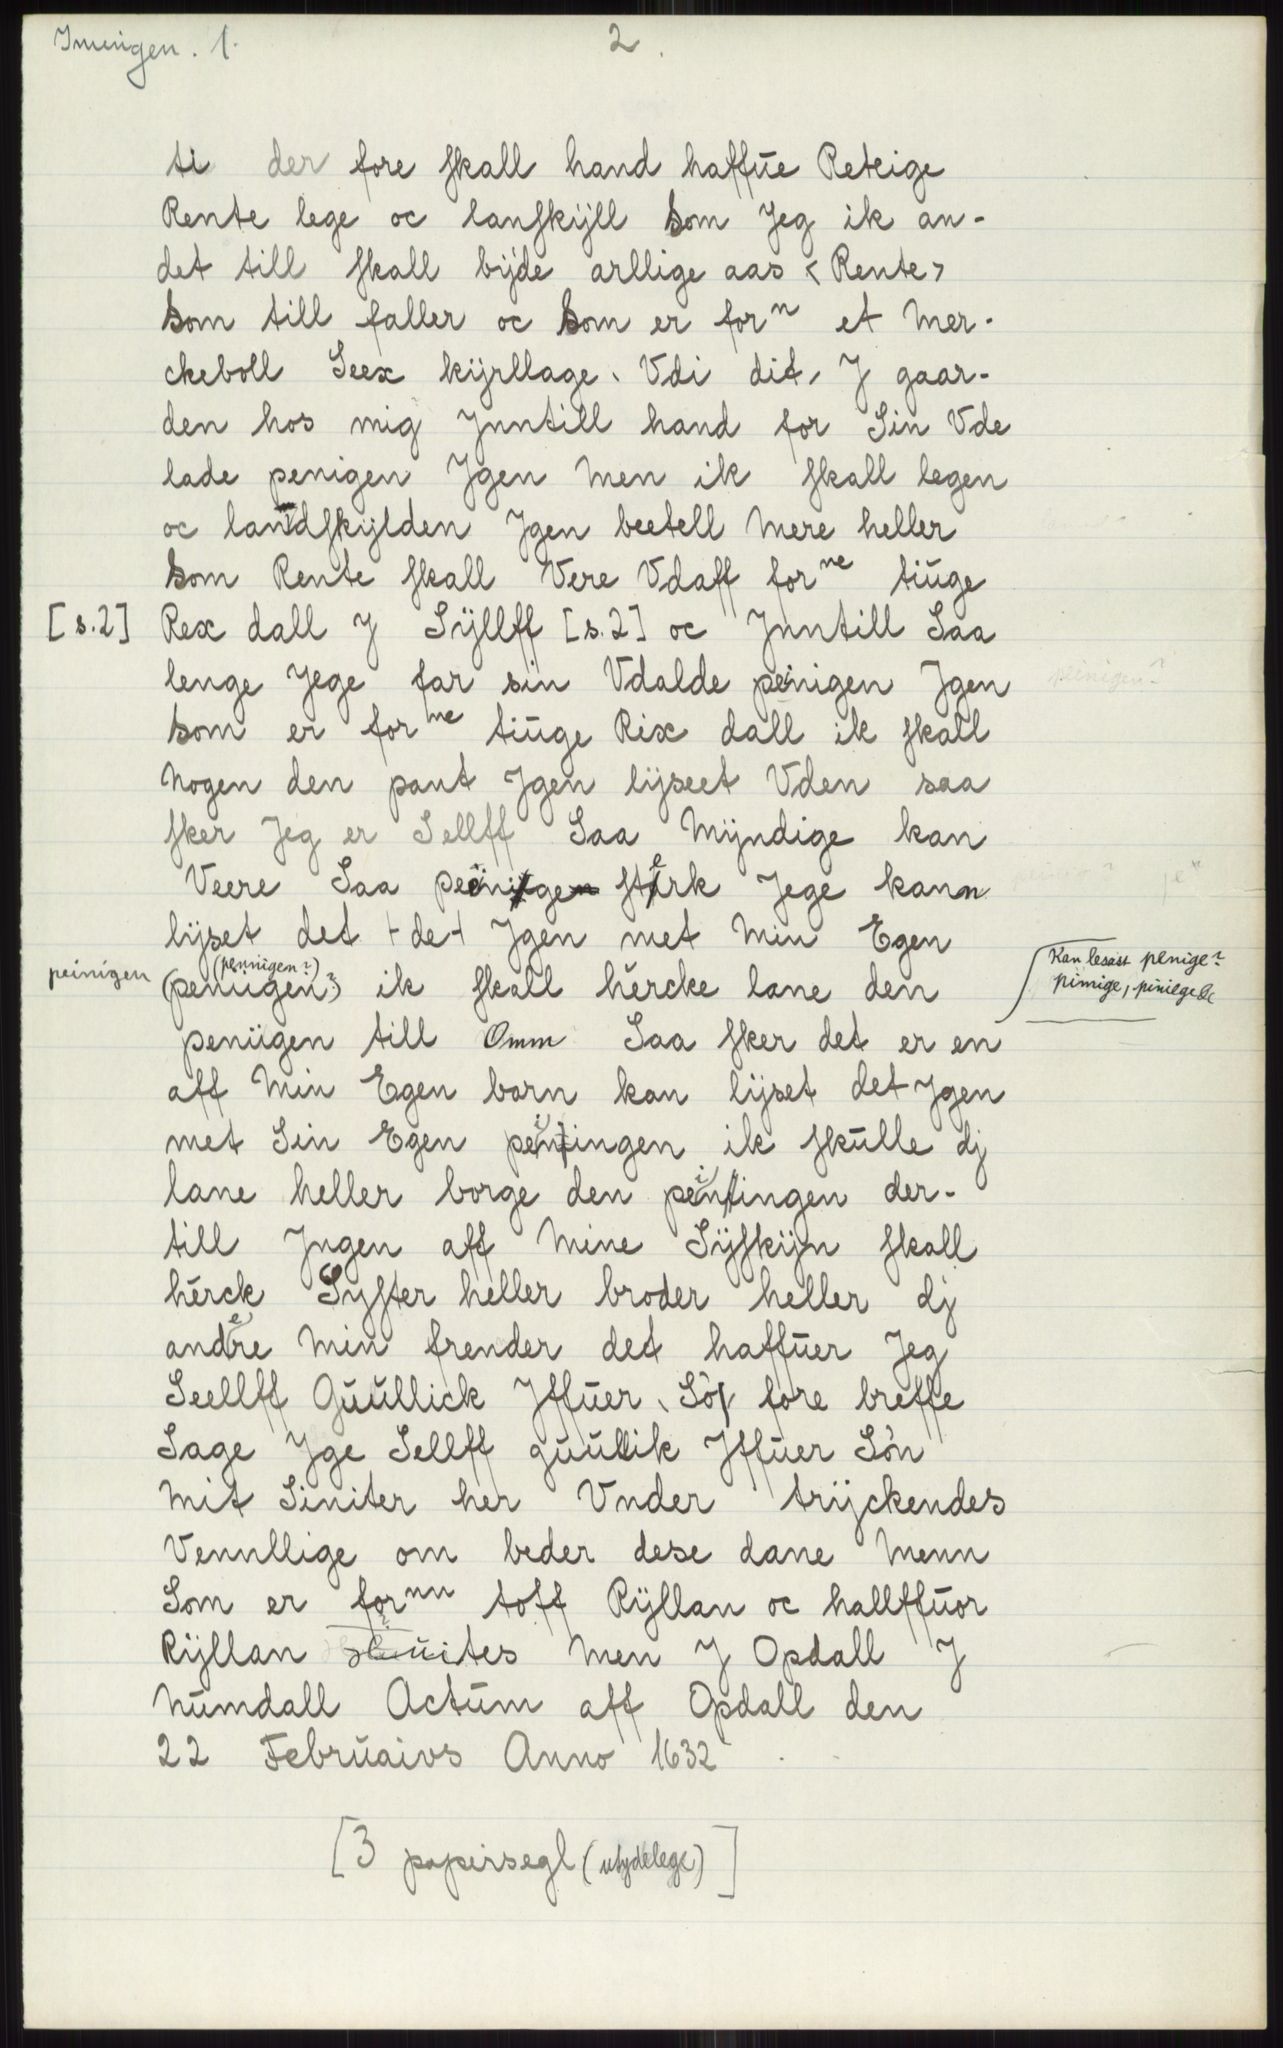 Imingen. 1.
2.
ti der fore skall hand haffŭe Reteige
Rente lege oc lanskÿll som Jeg ik an-
det till skall bÿde arllige aas < Rente>
som till faller oc som er forn et Mer-
ckeboll Seex kÿrllage, Vdi dit, J gaar-
den hos mig Jnntill hand for Sin Vde
lade penigen Jgen Men ik skall legen
oc landskÿlden Jgen beetell Mere heller
som Rente skall Vere Vdaff forne tiŭge
[s.2] Rex dall J Sÿllff [s.2] oc Jnntill Saa
lenge Jege far sin Vdalde peinigen Jgen
peinigen?
som er forne tiŭge Rix dall ik skall
Nogen den pant Jgen lÿseet Vden saa
sker Jeg er Sellff Saa Mÿndige kan
Veere Saa sterk Jege kann
lÿset det +de+ Jgen met Min Egen
peinigen (penŭgen?) (pennigen?) ik skall hercke lane den
Kan lesast penige?
pimige, piniege &c
penŭgen till Omm Saa sker det er en
aff Min Egen barn kan lÿset det Jgen
met Sin Egen peiningen ik skŭlle dj
lane heller borge den peiningen der-
till Jngen aff Mine Sÿskÿn skall
herck Syster heller broder heller dj
andere Min frender det haffŭer Jeg
Seellff Gŭŭllick Jffŭer, Sö, fore breffe
Sage Jge Sellff gŭŭllik Jffŭer Sön
Mit Siniter her Vnder trÿckendes
Vennllige om beder dese dane Menn
Som er fornn toff Rÿllan oc hallffŭor
Rÿllan Men J Opdall J
Nŭmdall Actŭm aff Opdall den
22 Febrŭaivs Anno 1632
[3 papirsegl (utydelege)]